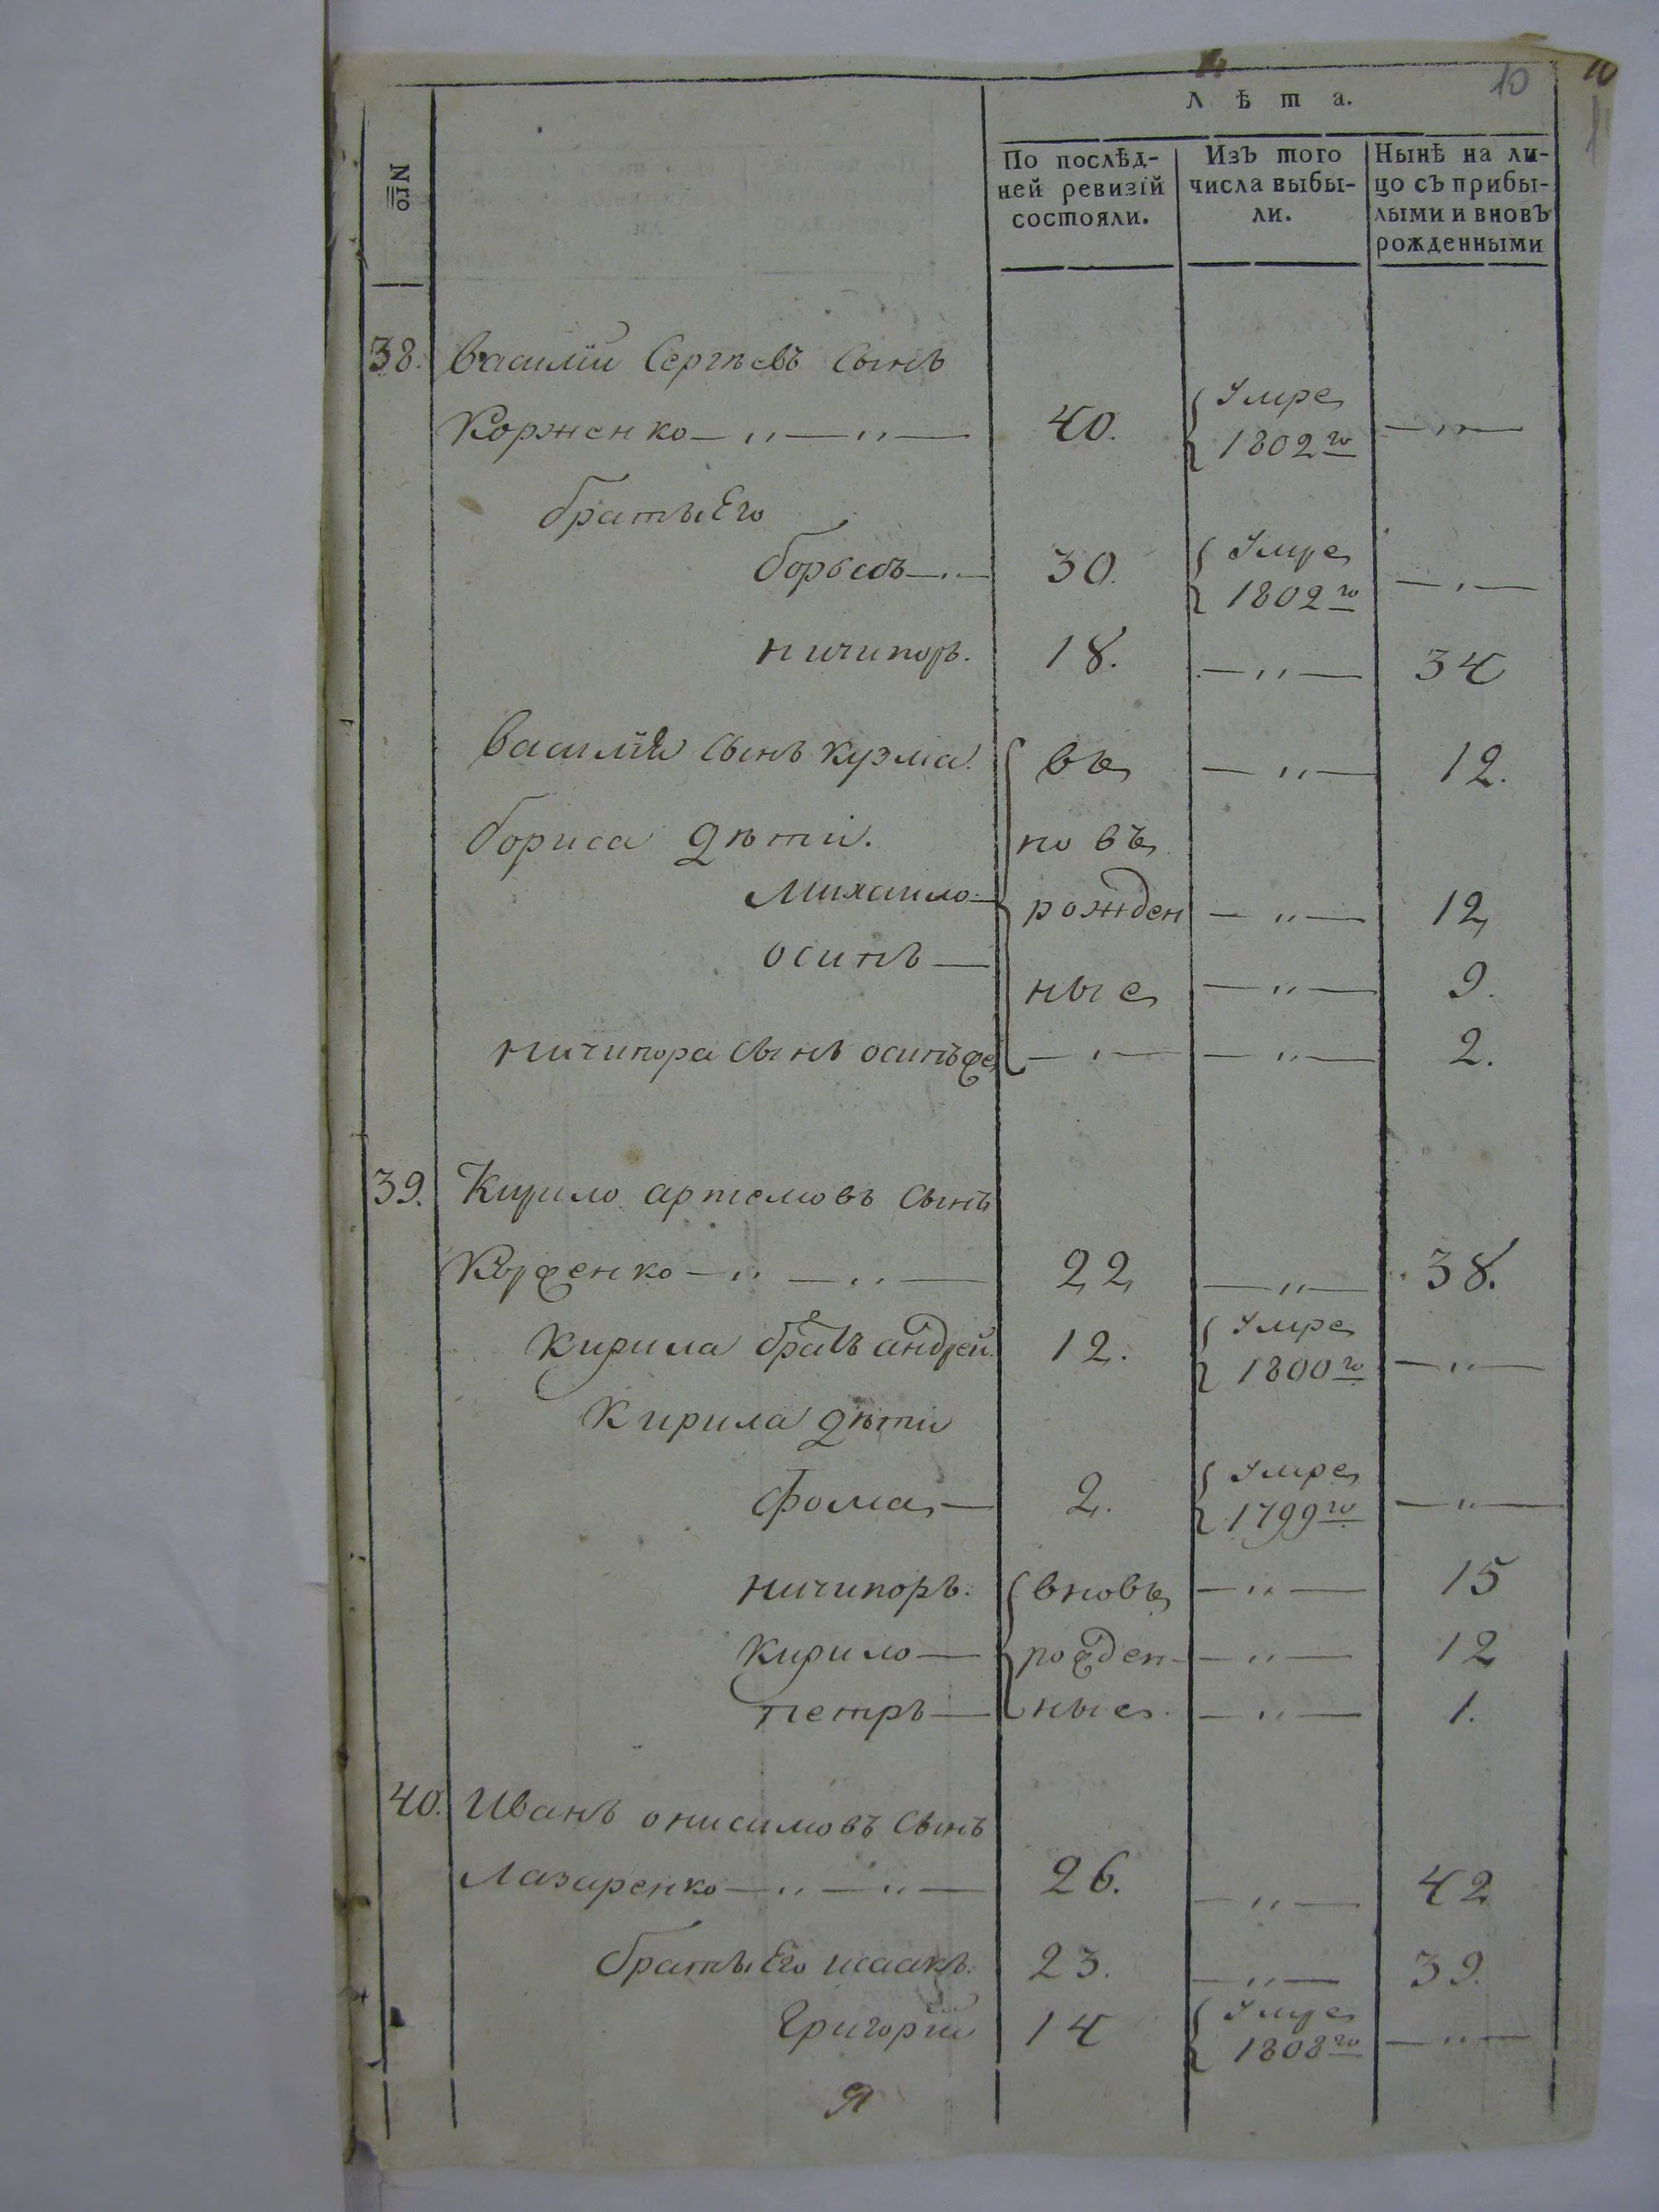 10 10
Лѣта.
№го
По послѣд-
ней ревизїй
состояли.
Изъ того
числа выбы-
ли.
Нынѣ на ли-
цо съ прибы-
лыми и вновь
рожденными
38. Василїй Сергѣевъ сынъ
Корженко —„—„— 40. Умре 1802го —„—
братьи Его
борисъ —„— 30. Умре 1802го —„—
ничипоръ. 18. —„— 34
Василїя сынъ кузма. вь —„— 12.
бориса дѣти. новь
михаило — рожден —„— 12
осипъ — ные —„— 9.
ничипора сынъ осипъ же —„— —„— 2.
39. Кирило артемовъ сынъ
Корженко —„—„— 22 —„— 38.
Кирила братъ андрей. 12. Умре 1800го —„—
Кирила дѣти
фома — 2. Умре 1799го —„—
ничипоръ. вновь —„— 15
кирило — рожден- —„— 12
петръ — ные. —„— 1.
40. Иванъ онисимовъ сынъ
Лазаренко —„—„— 26. —„— 42
братьи Его исаакъ. 23. —„— 39.
Григорїй 14 Умре 1808го —„—